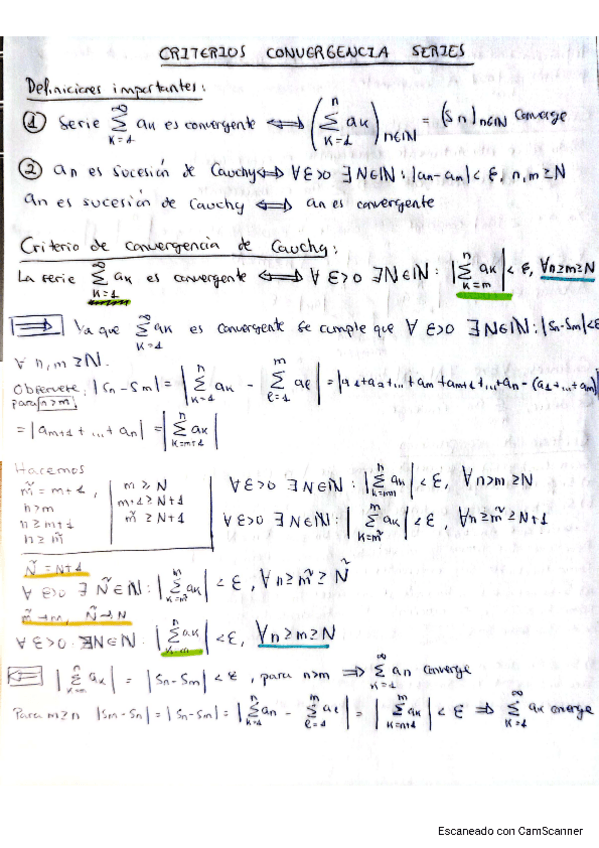 CRITERIOS CONVERGENCIA SERIES
Definiciones importantes:
① Serie ∑_{k=1}^{∞} ak es convergente ⟺ (∑_{k=1}^{n} ak)_{n∈ℕ} = (Sn)_{n∈ℕ} converge
② an es sucesión de Cauchy ⟺ ∀ε>0 ∃N∈ℕ: |an-am|<ε, n,m≥N
an es sucesión de Cauchy ⟺ an es convergente
Criterio de convergencia de Cauchy:
La serie ∑_{k=1}^{∞} ak es convergente ⟺ ∀ε>0 ∃N∈ℕ: |∑_{k=m}^{n} ak|<ε, ∀n≥m≥N
⟹ Ya que ∑_{k=1}^{∞} ak es convergente se cumple que ∀ε>0 ∃N∈ℕ: |Sn-Sm|<ε
∀ n,m≥N.
Observese, |Sn-Sm| = |∑_{k=1}^{n} ak - ∑_{l=1}^{m} al| = |a1+a2+...+am+am+1+...+an-(a1+...+am)|
para n>m,
= |am+1+...+an| = |∑_{k=m+1}^{n} ak|
Haremos
m̃=m+1,
n>m
n≥m+1
n≥m̃
m≥N
m+1≥N+1
m̃≥N+1
∀ε>0 ∃N∈ℕ: |∑_{k=m+1}^{n} ak|<ε, ∀n>m≥N
∀ε>0 ∃N∈ℕ: |∑_{k=m̃} ak|<ε, ∀n≥m̃≥N+1
Ñ=N+1
∀ε>0 ∃Ñ∈ℕ: |∑_{k=m̃} ak|<ε, ∀n≥m̃≥Ñ
m̃→m, Ñ→N
∀ε>0 ∃N∈ℕ: |∑ ak|<ε, ∀n≥m≥N
⟸ |∑ ak| = |Sn-Sm|<ε, para n>m ⟹ ∑_{k=1}^{∞} an converge
Para m≥n |Sm-Sn| = |Sn-Sm| = |∑_{k=1}^{n} an - ∑_{l=1}^{m} al| = |∑_{k=n+1}^{m} ak|<ε ⟹ ∑_{k=1}^{∞} ak onerge
Escaneado con CamScanner